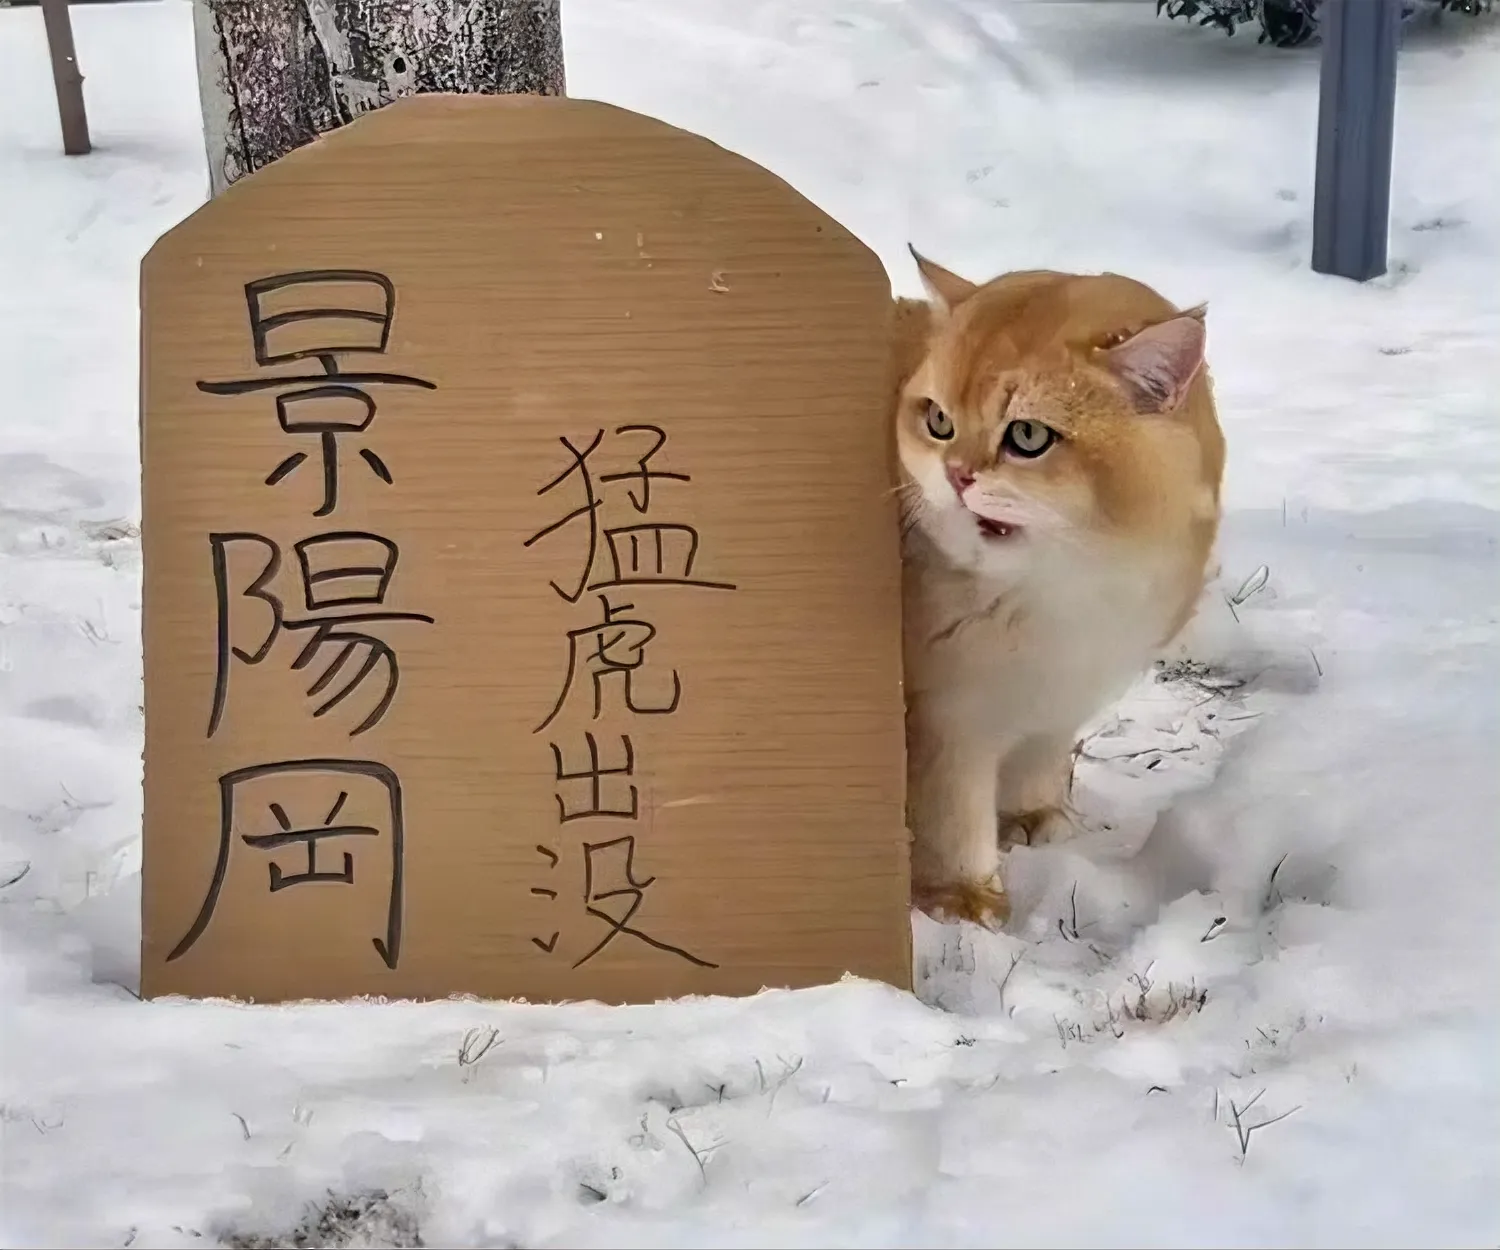 景陽岡
猛虎出没